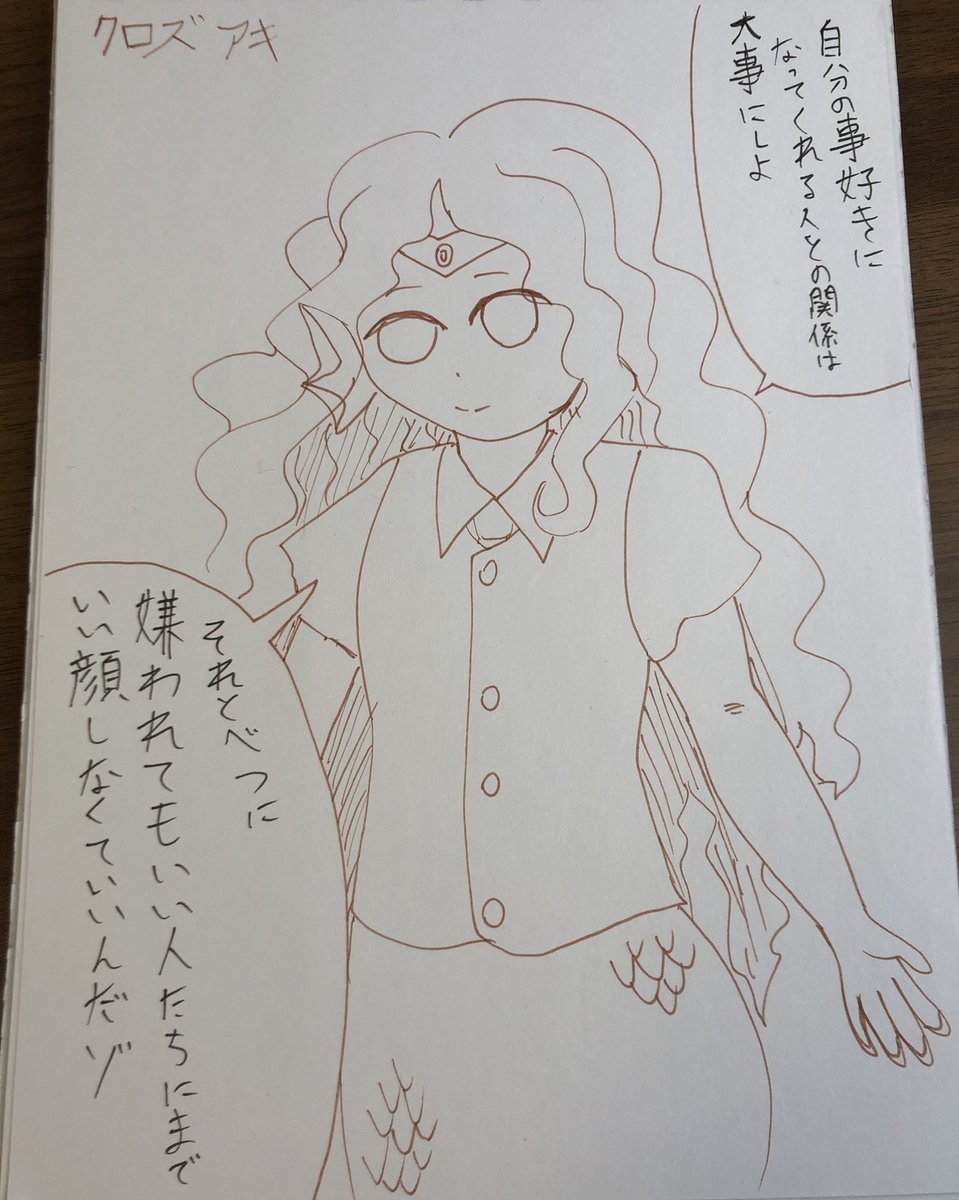 クロズ アキ
自分の事好きに
なってくれる人との関係は
大事にしよ
それとべつに
嫌われてもいい人たちにまで
いい顔しなくていいんだゾ